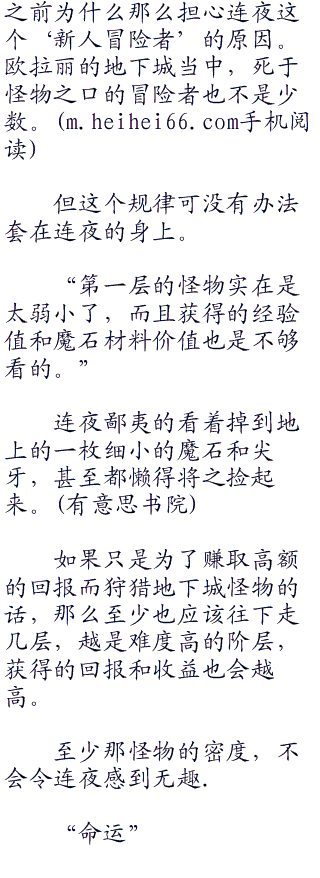 之前为什么那么担心连夜这
个‘新人冒险者’的原因。
欧拉丽的地下城当中，死于
怪物之口的冒险者也不是少
数。(m.heihei66.com手机阅
读)
但这个规律可没有办法
套在连夜的身上。
“第一层的怪物实在是
太弱小了，而且获得的经验
值和魔石材料价值也是不够
看的。”
连夜鄙夷的看着掉到地
上的一枚细小的魔石和尖
牙，甚至都懒得将之捡起
来。(有意思书院)
如果只是为了赚取高额
的回报而狩猎地下城怪物的
话，那么至少也应该往下走
几层，越是难度高的阶层，
获得的回报和收益也会越
高。
至少那怪物的密度，不
会令连夜感到无趣.
“命运”